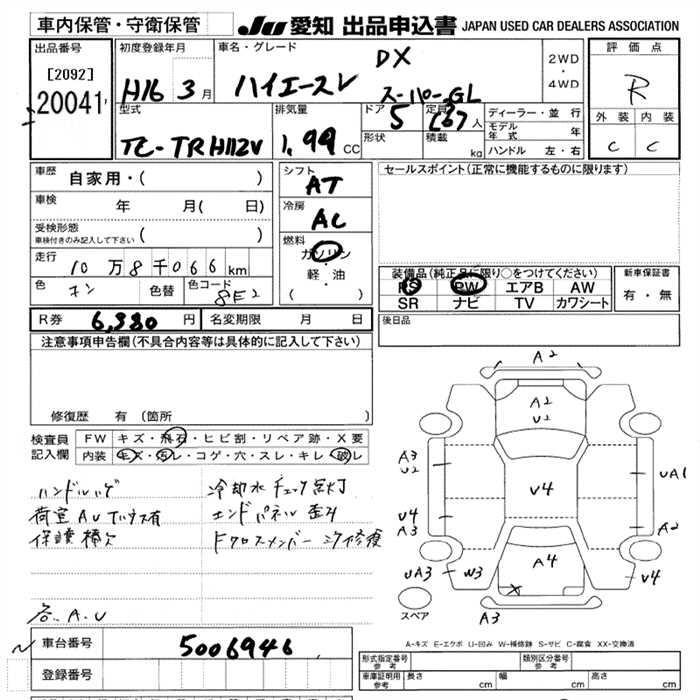 車内保管・守衛保管
JU 愛知 出品申込書 JAPAN USED CAR DEALERS ASSOCIATION
出品番号
[2092]
20041
初度登録年月
H16 3 月
車名・グレード
DX
ハイエースV
スーパーGL
2WD
・
4WD
評価点
R
外装 内装
C C
型式
TC-TRH112V
排気量
1,99 CC
ドア
5
形状
定員
(6) 人
積載
kg
ディーラー・並行
モデル年式 年
ハンドル 左・右
車歴
自家用・( )
車検
年 月( 日)
受検形態
車検付きのみ記入して下さい
( )
走行
10万8千066km
色
色替
色コード
8E2
シフト
AT
冷房
AC
燃料
ガソリン
・
軽・油
( )
セールスポイント(正常に機能するものに限ります)
装備品(純正品に限り○をつけてください)
PS PW エアB AW
SR ナビ TV カワシート
新車保証書
有・無
R券 6,380 円
名変期限 月 日
後日品
注意事項申告欄(不具合内容等は具体的に記入して下さい)
修復歴 有 (箇所 )
検査員
記入欄
FW キズ・飛石・ヒビ割・リペア跡・X要
内装 キズ・汚レ・コゲ・穴・スレ・キレ・破レ
ハンドルハゲ
冷却水チェック点灯
荷室AUTいタス有
エンドパネル歪み
保護棒欠
Fクロスメンバーミケ修復
各A.U
A2
A2
U2
A3
U2
UA1
U4
U4
A3
A2
A4
UA3
W3
U4
スペア
A3
A-キズ E-エクボ U-凹み W-補修跡 S-サビ C-腐食 XX-交換済
車台番号
5006946
登録番号
形式指定番号
参考
類別区分番号
参考
車庫証明用
参考
長さ cm
幅 cm
高さ cm